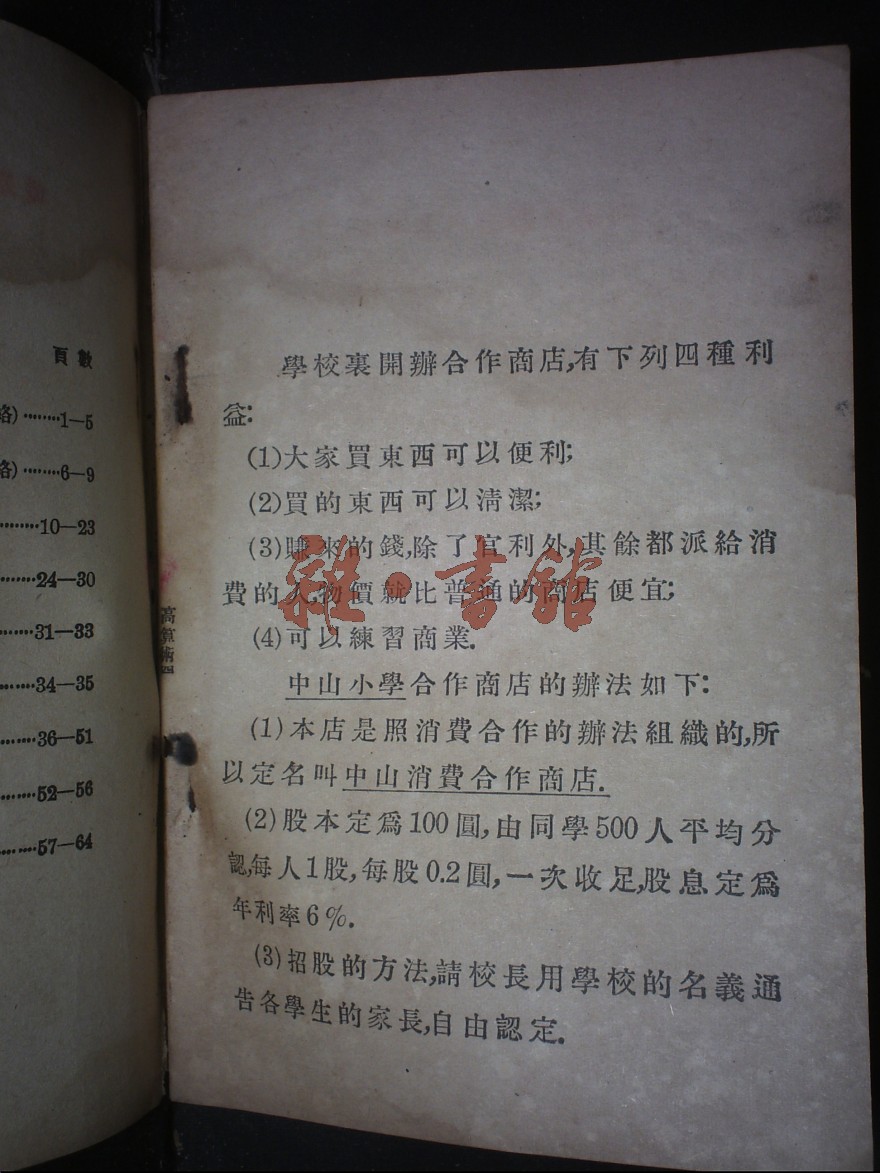 頁數
略)………1–5
略)………6–9
………10–23
………24–30
………31–33
………34–35
………36–51
………52–56
………57–64
高算術四
學校裏開辦合作商店,有下列四種利
益:
(1)大家買東西可以便利;
(2)買的東西可以淸潔;
(3)賺來的錢,除了官利外,其餘都派給消
費的人,物價就比普通的商店便宜;
(4)可以練習商業.
中山小學合作商店的辦法如下:
(1)本店是照消費合作的辦法組織的,所
以定名叫中山消費合作商店.
(2)股本定爲100圓,由同學500人平均分
認,每人1股,每股0.2圓,一次收足,股息定爲
年利率6%.
(3)招股的方法,請校長用學校的名義通
告各學生的家長,自由認定.
雜·書館